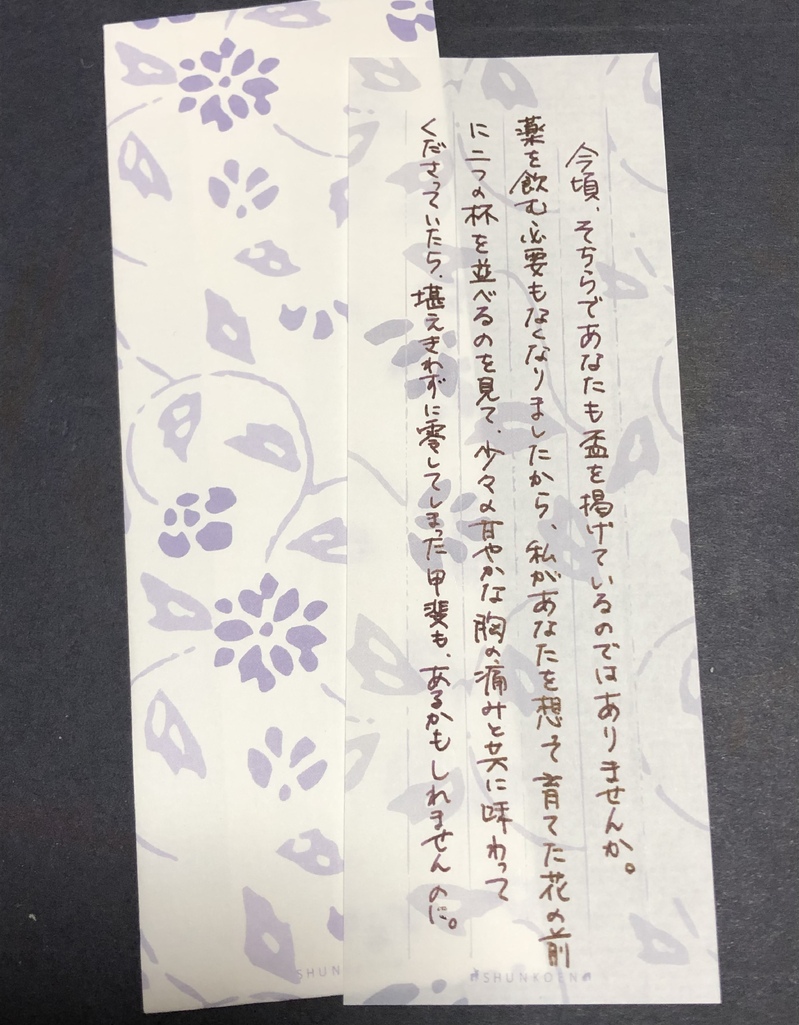 今頃、そちらであなたも盃を掲げているのではありませんか。
薬を飲む必要もなくなりましたから、私があなたを想って育てた花の前
に二つの杯を並べるのを見て、少々の甘やかな胸の痛みと共に味わって
くださっていたら、堪えきれずに零してしまった甲斐も、あるかもしれませんのに。
SHUN
SHUNKOEN